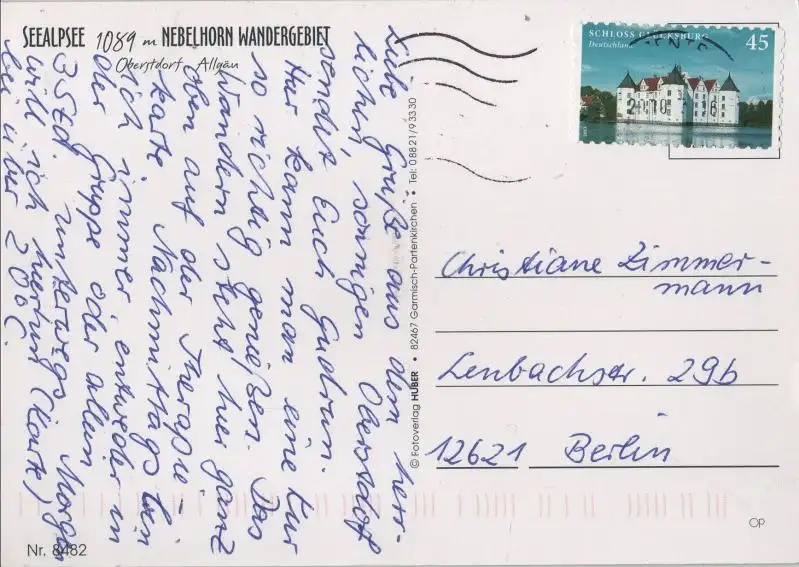 SEEALPSEE 1089 m NEBELHORN WANDERGEBIET
Oberstdorf - Allgäu
Liebe Grüße aus dem herr-
lichen, sonnigen Oberstdorf
sendet Euch Gudrun.
Hier kann man eine Kur
so richtig genießen. Das
Wandern steht hier ganz
oben auf der Therapie-
karte. Nachmittags bin
ich immer entweder in
der Gruppe oder allein
3Std. unterwegs. Morgen
will ich hierhin (Karte)
bei über 20°C
© Fotoverlag HUBER • 82467 Garmisch-Partenkirchen • Tel: 08821/93330
SCHLOSS GLÜCKSBURG
Deutschland
45
Christiane Zimmer-
mann
Lenbachstr. 29b
12621 Berlin
OP
Nr. 8482